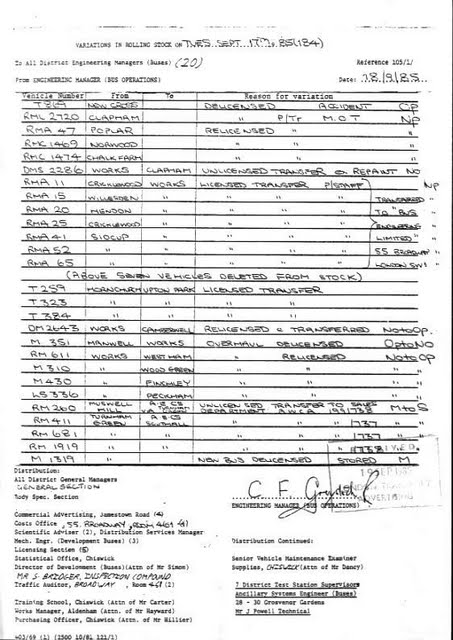 VARIATIONS IN ROLLING STOCK ON TUES. SEPT. 17TH 9.85 (184)
To All District Engineering Managers (Buses) (20)
Reference 105/1/
From ENGINEERING MANAGER (BUS OPERATIONS)
Date: 18/9/85
Vehicle Number From To Reason for variation
T 819 NEW CROSS DELICENSED ACCIDENT CP
RML 2720 CLAPHAM " P/Tr M.O.T NP
RMA 47 POPLAR RELICENSED "
RMC 1469 NORWOOD " "
RMC 1474 CHALK FARM " "
DMS 2286 WORKS CLAPHAM UNLICENSED TRANSFER ON REPAINT NO
RMA 11 CRICKLEWOOD WORKS LICENSED TRANSFER P/STAFF NP
RMA 15 WILLESDEN " " " TRANSFERRED "
RMA 20 HENDON " " " TO "BUS "
RMA 25 CRICKLEWOOD " " " ENGINEERING "
RMA 41 SIDCUP " " " LIMITED" "
RMA 52 " " " " 55 BROADWAY "
RMA 65 " " " " LONDON SW1 "
(ABOVE SEVEN VEHICLES DELETED FROM STOCK)
T 259 HORNCHURCH UPTON PARK LICENSED TRANSFER
T 323 " " "
T 384 " " "
DM 2643 WORKS CAMBERWELL RELICENSED & TRANSFERRED No to Op.
M 351 HANWELL WORKS OVERHAUL DELICENSED Op to No
RM 611 WORKS WEST HAM " RELICENSED No to Op
M 310 " WOOD GREEN " " "
M 430 " FINCHLEY " " "
LS 336 " PECKHAM " " "
RM 260 MUSWELL HILL A.E.C'S UNLICENSED TRANSFER TO SALES DEPARTMENT A.W.C.A. 199/738 M to S
RM 411 TURNHAM GREEN A.E.C'S SOUTHALL " " 1737 "
RM 681 " " " " 1737 "
RM 1919 " " " " 1738
M 1319 NEW BUS DELICENSED STORED M
Distribution:
All District General Managers
GENERAL SECTION
Body Spec. Section
C. F.
ENGINEERING MANAGER (BUS OPERATIONS)
Commercial Advertising, Jamestown Road (4)
Costs Office, 55, BROADWAY, ROOM
Scientific Adviser (2), Distribution Services Manager
Mech. Engr. (Development Buses) (3)
Licensing Section (5)
Statistical Office, Chiswick
Director of Development (Buses)(Attn of Mr Simon)
MR S. BRIDGER, INSPECTION COMPOUND
Traffic Auditor, BROADWAY, Room
Distribution Continued:
Senior Vehicle Maintenance Examiner
Supplies, CHISWICK (Attn of Mr Dancy)
7 District Test Station Supervisors
Ancillary Systems Engineer (Buses)
28 - 30 Grosvenor Gardens
Mr J Powell Technical
Training School, Chiswick (Attn of Mr Carter)
Works Manager, Aldenham (Attn of Mr Hayward)
Purchasing Officer, Chiswick (Attn of Mr Hillier)
403/69 (1) (2500 10/81 121/1)